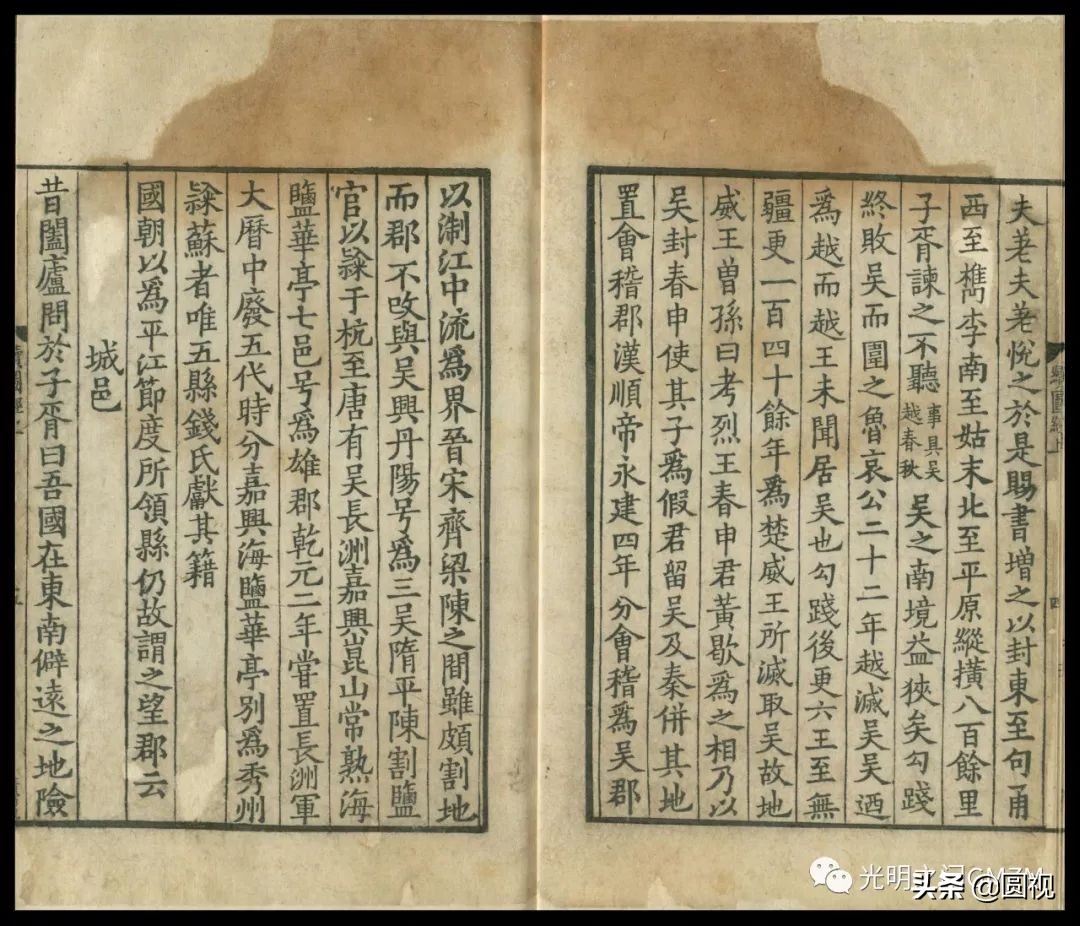 夫差夫差悅之於是賜書增之以封東至句甬
西至檇李南至姑末北至平原縱橫八百餘里
子胥諫之不聽事具吳越春秋吳之南境益狹矣勾踐
終敗吳而圍之魯哀公二十二年越滅吳吳迺
爲越而越王未聞居吳也勾踐後更六王至無
疆更一百四十餘年爲楚威王所滅取吳故地
威王曽孫曰考烈王春申君黃歇爲之相乃以
吳封春申使其子爲假君留吳及秦併其地
置會稽郡漢順帝永建四年分會稽爲吳郡
以淛江中流爲界晉宋齊梁陳之間雖頗割地
而郡不改與吳興丹陽号爲三吳隋平陳割鹽
官以隸于杭至唐有吳長洲嘉興崑山常熟海
鹽華亭七邑号爲雄郡乾元二年嘗置長洲軍
大曆中廢五代時分嘉興海鹽華亭別爲秀州
隸蘇者唯五縣錢氏獻其籍
國朝以爲平江節度所領縣仍故謂之望郡云
城邑
昔闔廬問於子胥曰吾國在東南僻遠之地險
光明之门
头条 @圆视